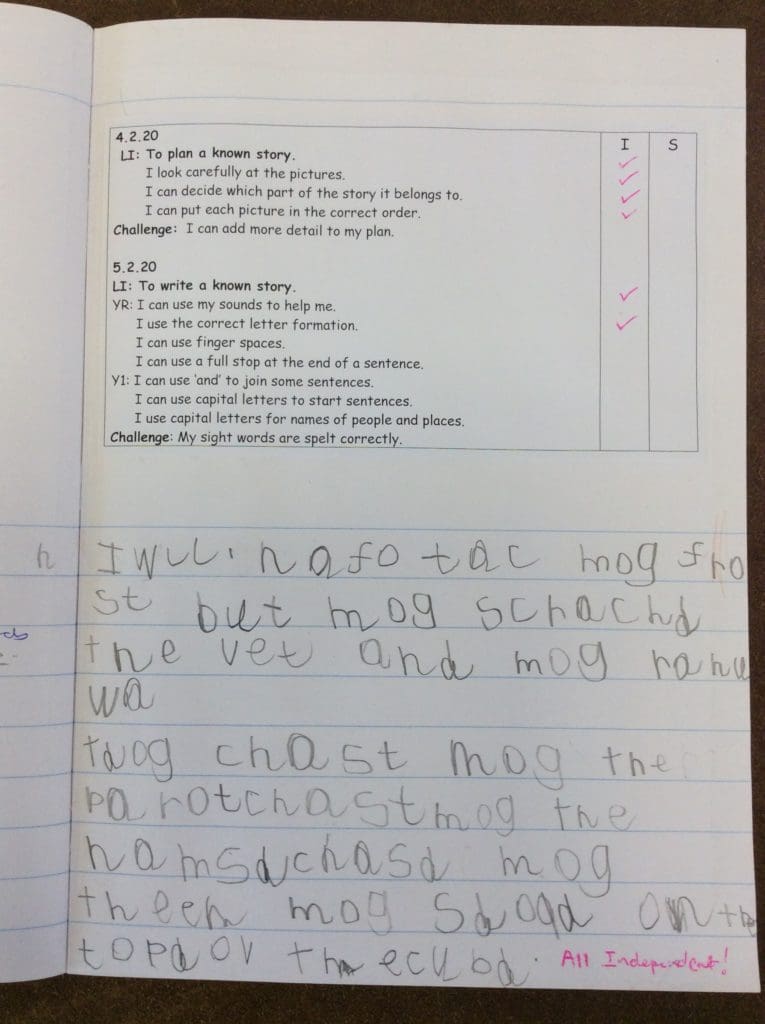 4.2.20 I S
LI: To plan a known story.
I look carefully at the pictures.
I can decide which part of the story it belongs to.
I can put each picture in the correct order.
Challenge: I can add more detail to my plan.
5.2.20
LI: To write a known story.
YR: I can use my sounds to help me.
I use the correct letter formation.
I can use finger spaces.
I can use a full stop at the end of a sentence.
Y1: I can use 'and' to join some sentences.
I can use capital letters to start sentences.
I use capital letters for names of people and places.
Challenge: My sight words are spelt correctly.
h I will. hafo tac mog
st but mog schachd
the vet and mog
wa
chast mog the
parotchastmog the
mog
mog on the
All Independent!